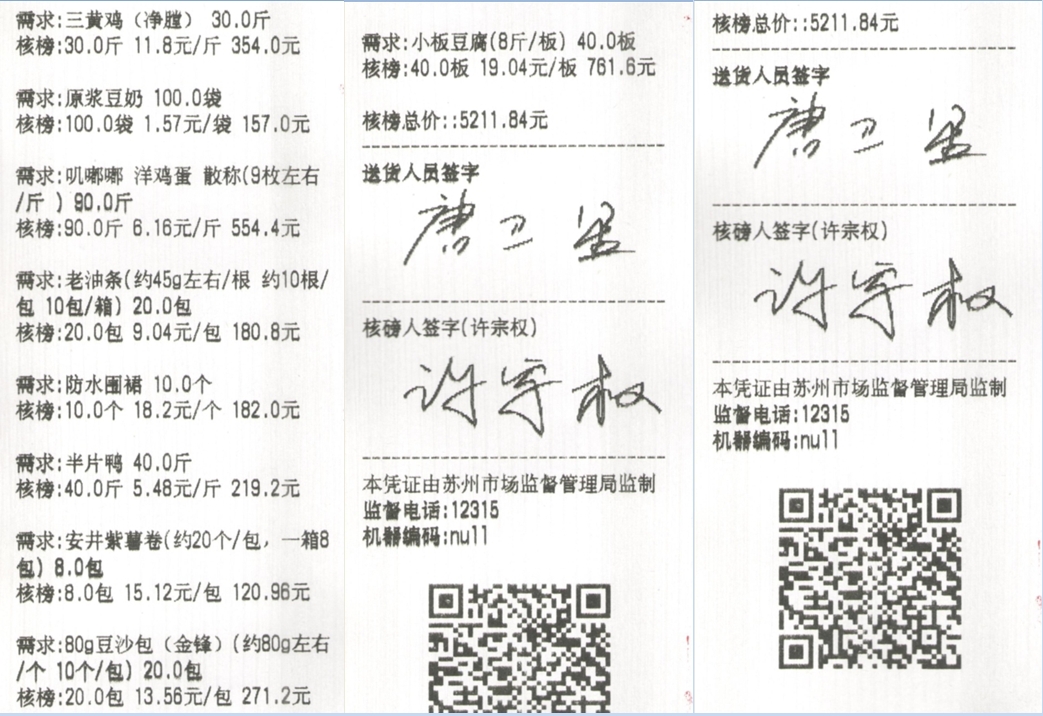 需求:三黄鸡（净膛） 30.0斤
核榜:30.0斤 11.8元/斤 354.0元
需求:原浆豆奶 100.0袋
核榜:100.0袋 1.57元/袋 157.0元
需求:叽嘟嘟 洋鸡蛋 散称(9枚左右
/斤 ) 90.0斤
核榜:90.0斤 6.16元/斤 554.4元
需求:老油条(约45g左右/根 约10根/
包 10包/箱) 20.0包
核榜:20.0包 9.04元/包 180.8元
需求:防水围裙 10.0个
核榜:10.0个 18.2元/个 182.0元
需求:半片鸭 40.0斤
核榜:40.0斤 5.48元/斤 219.2元
需求:安井紫薯卷(约20个/包，一箱8
包) 8.0包
核榜:8.0包 15.12元/包 120.96元
需求:80g豆沙包（金锋）(约80g左右
/个 10个/包) 20.0包
核榜:20.0包 13.56元/包 271.2元
需求:小板豆腐(8斤/板) 40.0板
核榜:40.0板 19.04元/板 761.6元
核榜总价::5211.84元
送货人员签字
唐卫
核磅人签字(许宗权)
许宗权
本凭证由苏州市场监督管理局监制
监督电话:12315
机器编码:null
核榜总价::5211.84元
送货人员签字
唐卫
核磅人签字(许宗权)
许宗权
本凭证由苏州市场监督管理局监制
监督电话:12315
机器编码:null